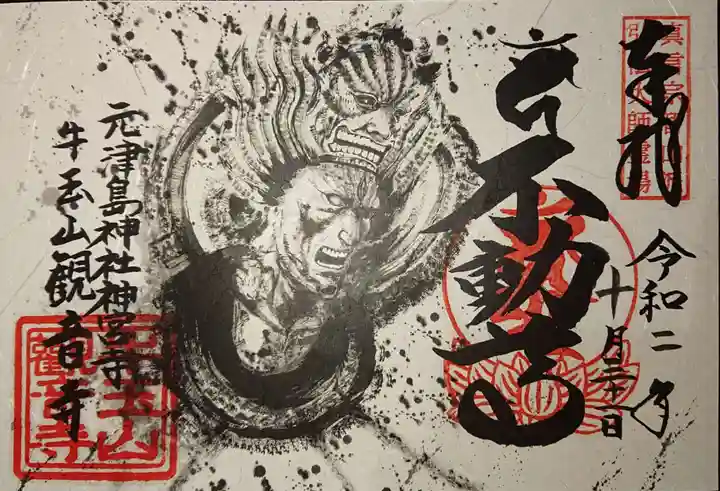 奉拝
真言宗智山派
弘法大師霊場
令和二年
十月三十一日
不動尊
元津島神社神宮寺
牛玉山観音寺
牛玉山
観音寺